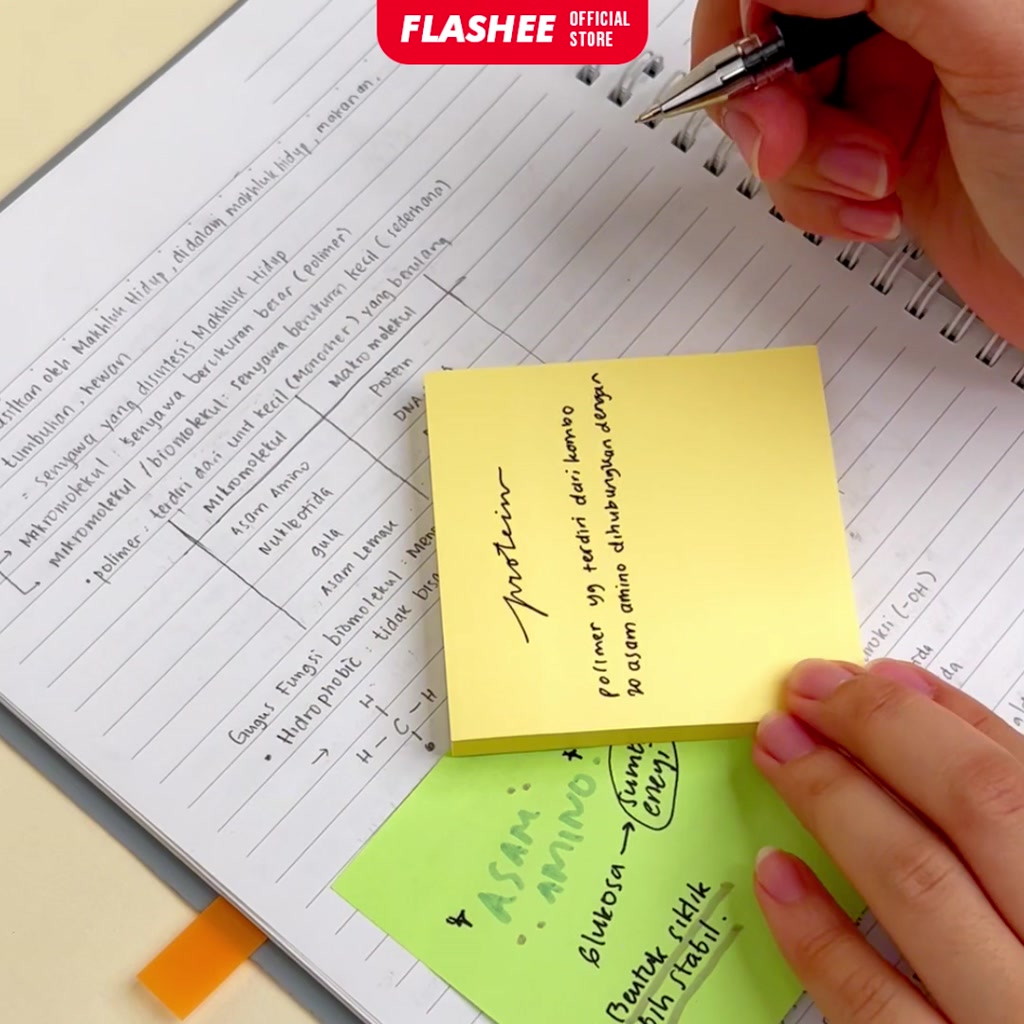 FLASHEE OFFICIAL
STORE
oleh Makhluk Hidup, didalam makhluk hidup, makanan,
tumbuhan, hewan
= senyawa yang disintesis Makhluk Hidup
→ Makromolekul : senyawa berukuran besar (polimer)
Mikromolekul / biomolekul : senyawa berukuran kecil (sederhana)
• polimer : terdiri dari unit kecil (monomer) yang berulang
Mikromolekul Makro molekul
Asam Amino Protein
Nukleotida DNA
gula
Asam Lemak
Gugus Fungsi biomolekul :
• Hidrophobic : tidak bisa
→
H
H - C - H
protein
polimer yg terdiri dari kombo
20 asam amino dihubungkan dengan
(-OH)
ASAM
AMINO
Glukosa →
energi
Bentuk siklik
stabil.